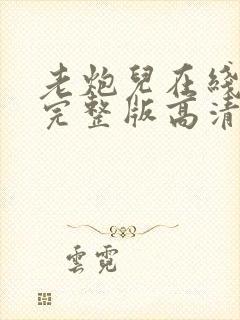 老炮兒在綫
完整版高清
雲霓